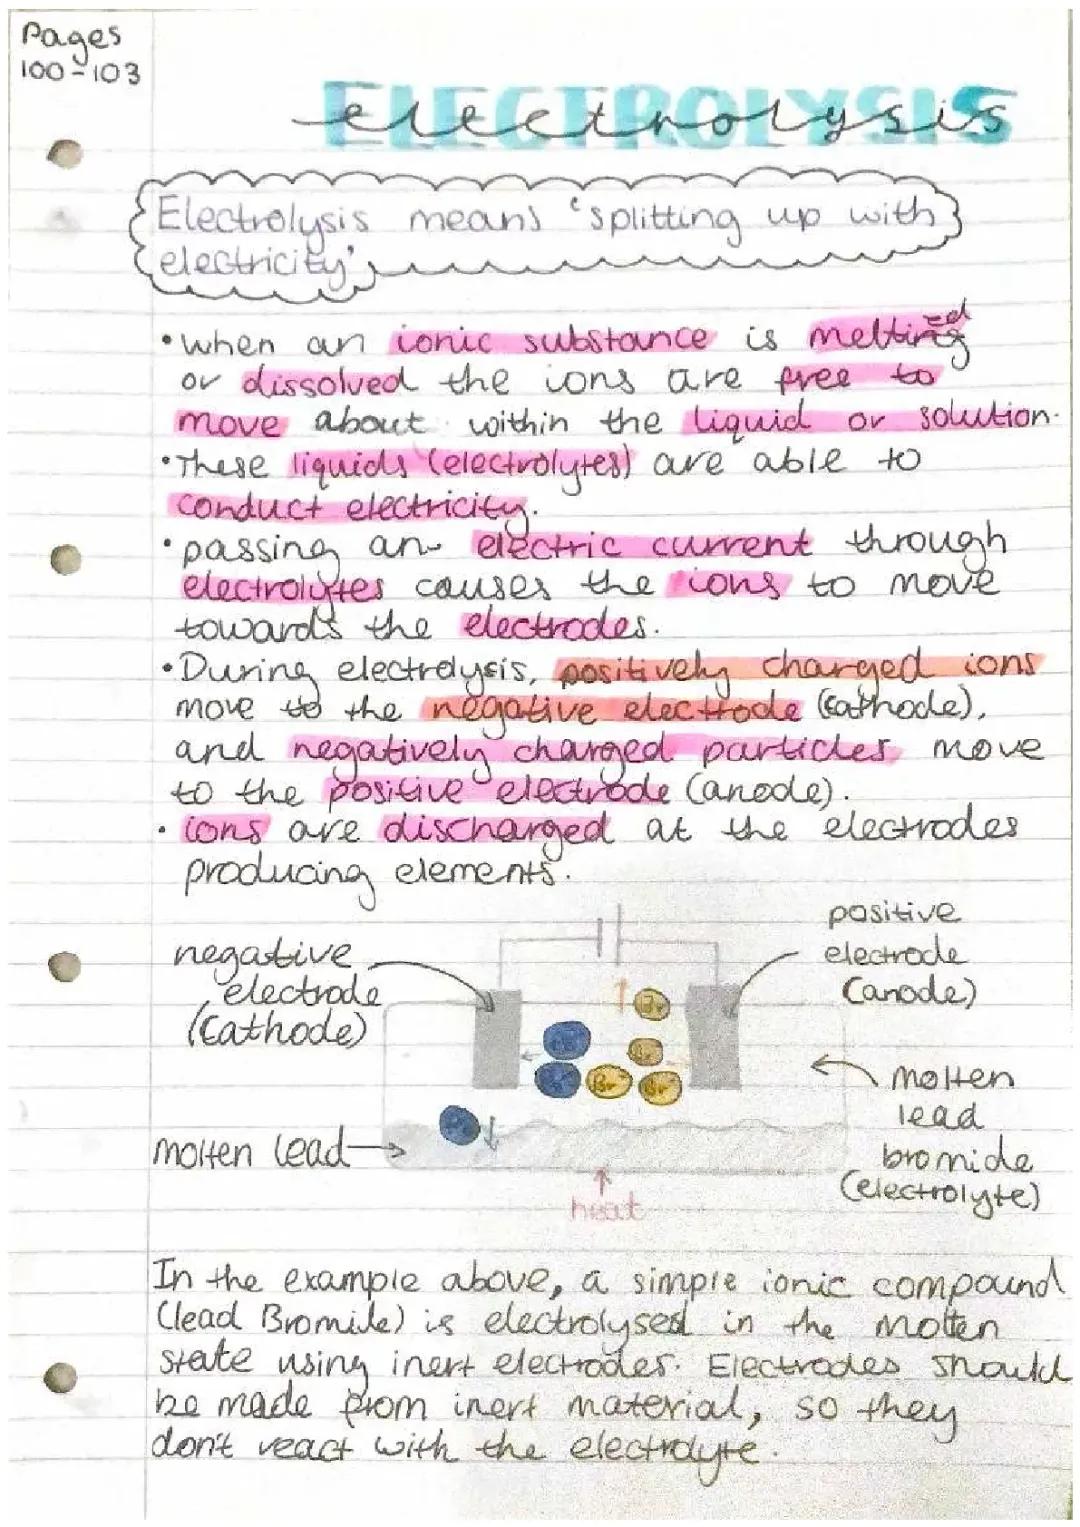 Pages
100-103
ELECTROLYSIS
electrolysis
Electrolysis means 'splitting up with
electricity'
• when an ionic substance is melting ed
or dissolved the ions are free to
move about within the liquid or solution.
• These liquids (electrolytes) are able to
conduct electricity.
• passing an electric current through
electrolytes causes the ions to move
towards the electrodes.
• During electrolysis, positively charged ions
move to the negative electrode (cathode),
and negatively charged particles move
to the positive electrode (anode).
• ions are discharged at the electrodes
producing elements.
negative
electrode
(cathode)
positive
electrode
(anode)
Br
Br
Br⁻
Br⁻
molten lead
molten
lead
bromide
(electrolyte)
heat
In the example above, a simple ionic compound
(lead Bromide) is electrolysed in the molten
state using inert electrodes. Electrodes should
be made from inert material, so they
don't react with the electrolyte.